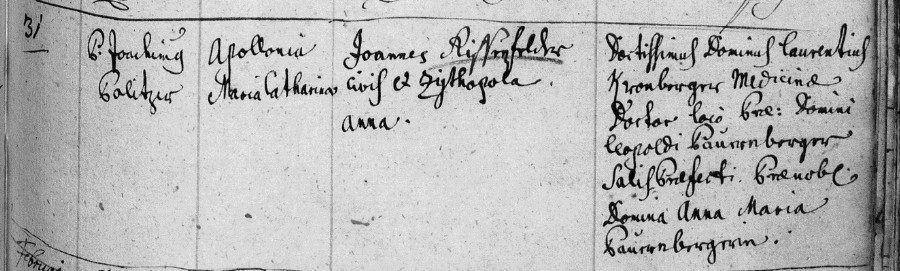 31
P. Joachimg
Politzer
Apollonia
Maria Catharina
Joannes Rissenfelder
civis et Zythopola
Anna.
Doctissimus Dominus Laurentius
Kronberger Medicinæ
Doctor loco Præ: Domini
Leopoldi Pauernberger
Salis Præfecti. Prænob:
Domina Anna Maria
Pauernbergerin.